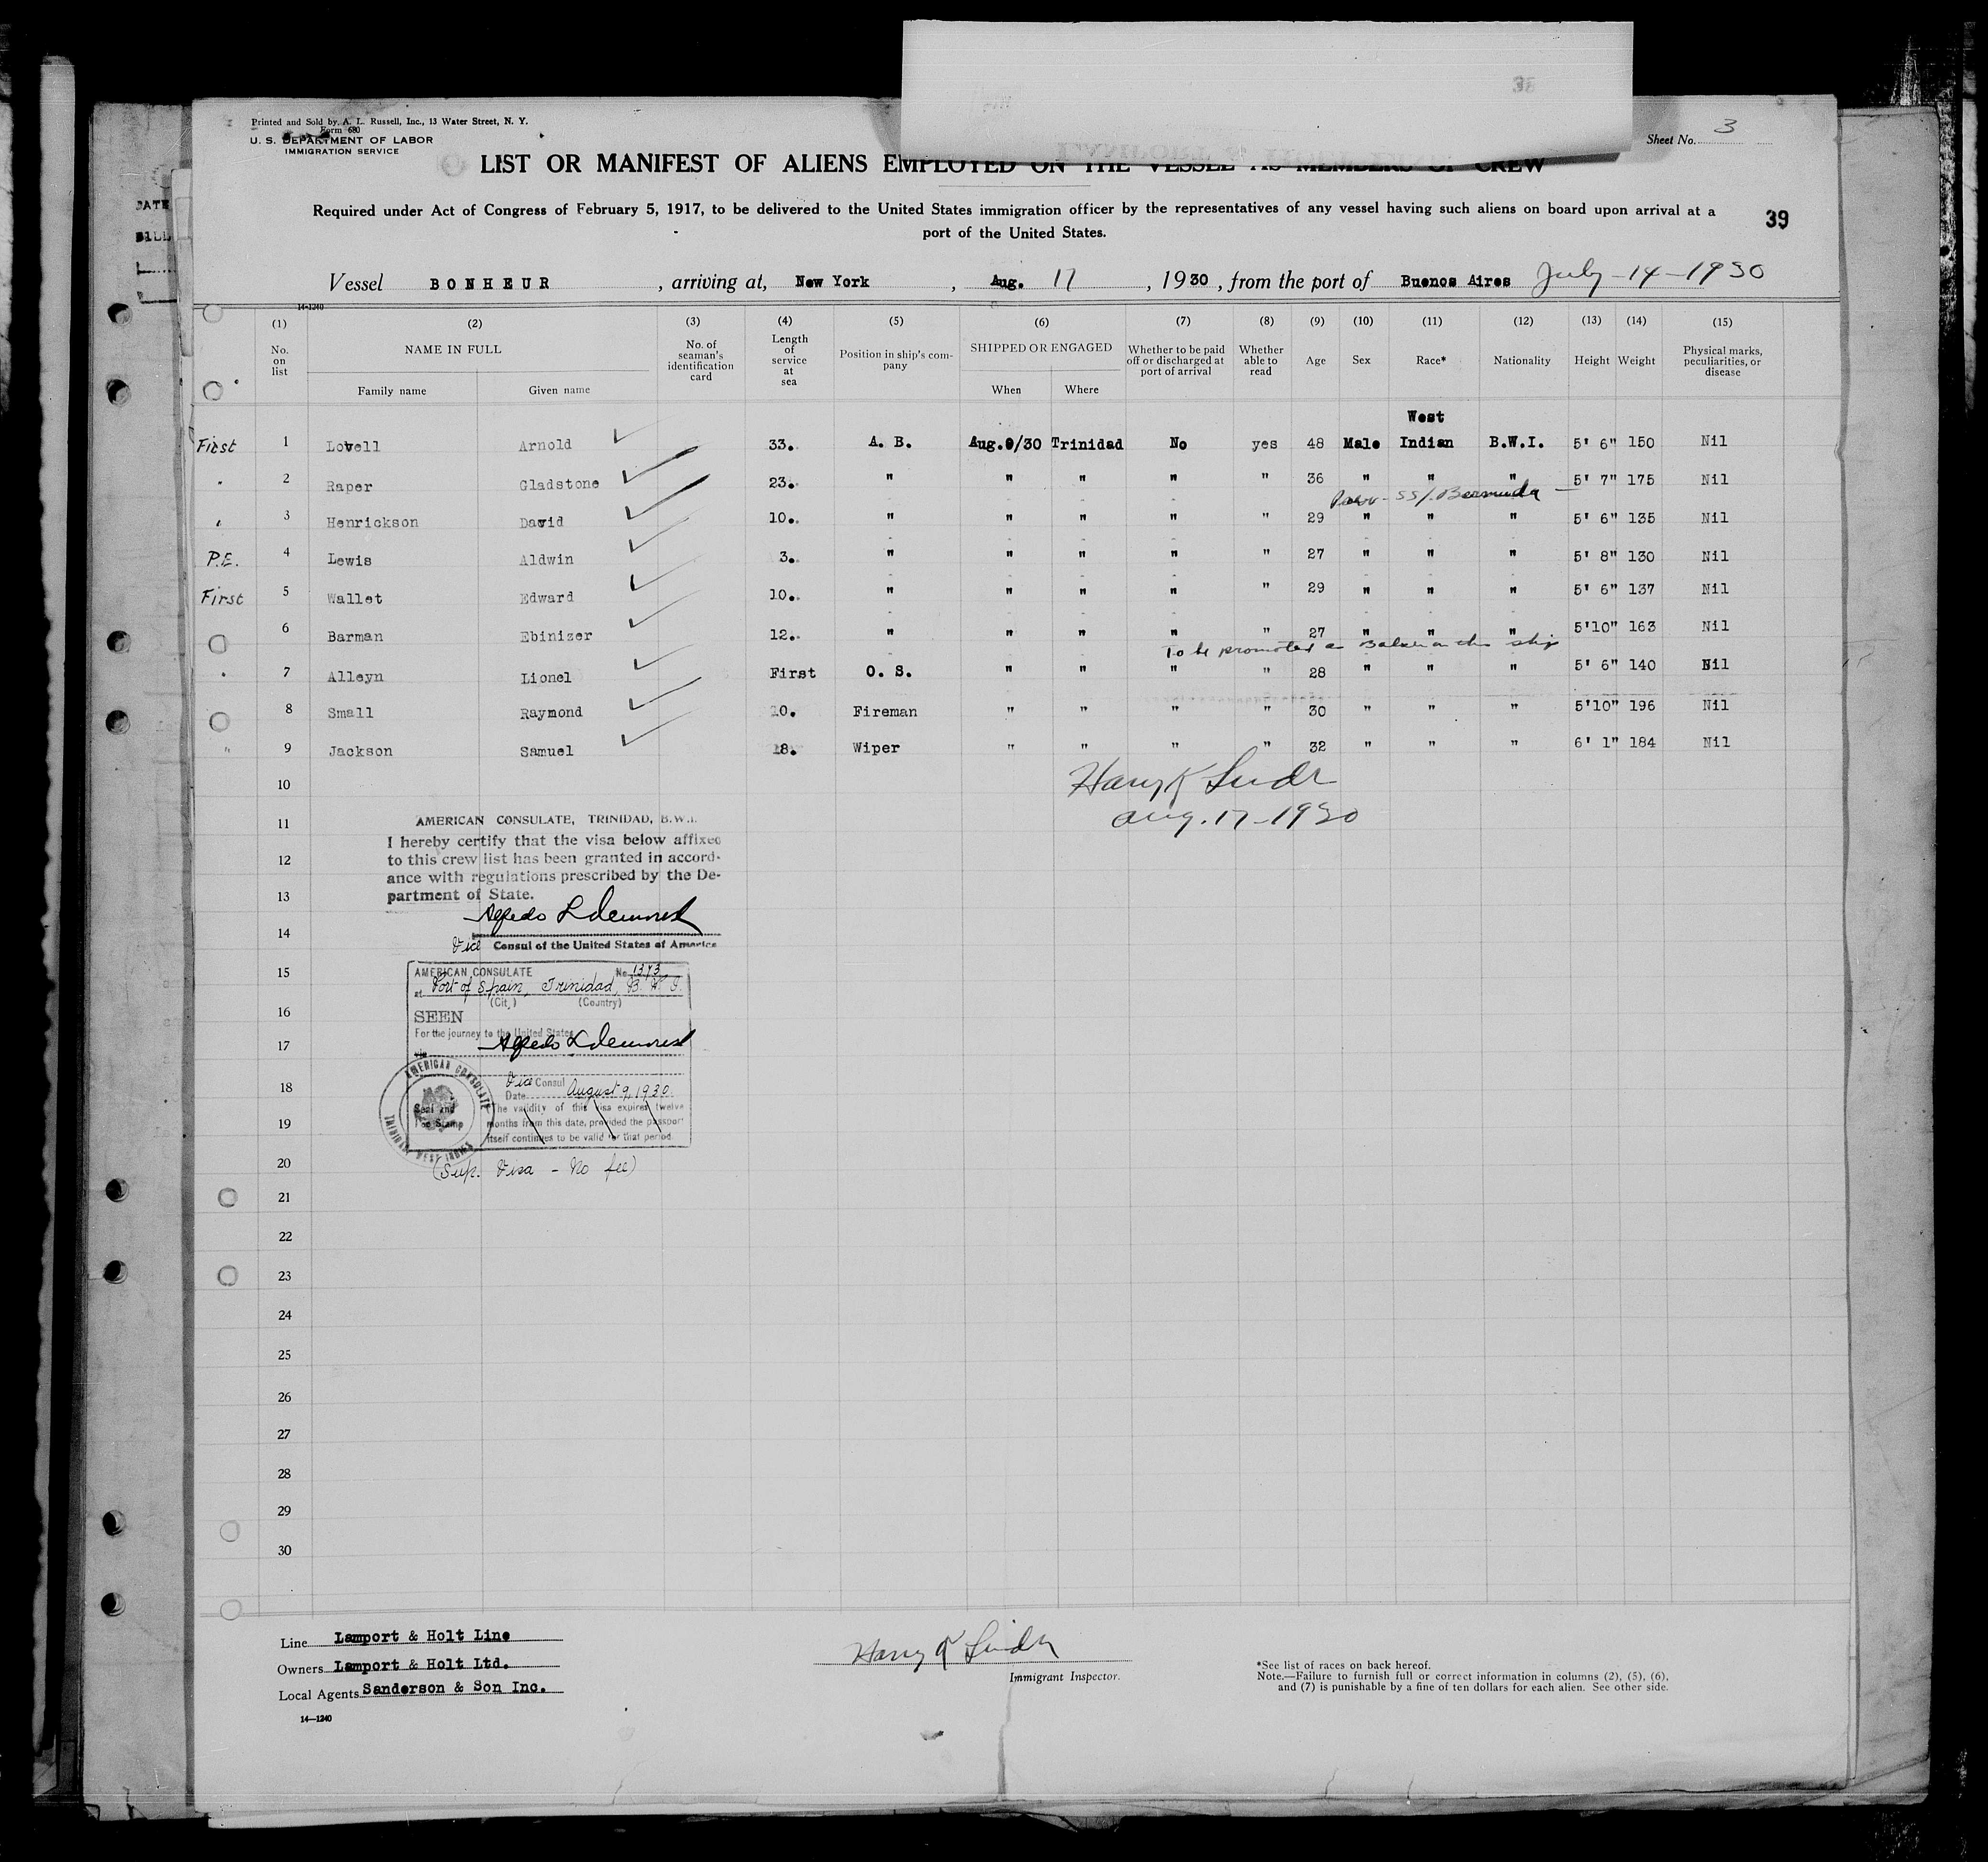 38
Printed and Sold by A. L. Russell, Inc., 13 Water Street, N. Y.
Form 680
U. S. DEPARTMENT OF LABOR
IMMIGRATION SERVICE
Sheet No. 3
LIST OR MANIFEST OF ALIENS EMPLOYED ON THE VESSEL AS MEMBERS OF CREW
Required under Act of Congress of February 5, 1917, to be delivered to the United States immigration officer by the representatives of any vessel having such aliens on board upon arrival at a
port of the United States.
39
DATE
Vessel BONHEUR , arriving at, New York , Aug. 17 , 1930 , from the port of Buenos Aires July-14-1930
14-1240
(1) (2) (3) (4) (5) (6) (7) (8) (9) (10) (11) (12) (13) (14) (15)
No. on list NAME IN FULL No. of seaman's identification card Length of service at sea Position in ship's company SHIPPED OR ENGAGED Whether to be paid off or discharged at port of arrival Whether able to read Age Sex Race* Nationality Height Weight Physical marks, peculiarities, or disease
Family name Given name When Where
West
First 1 Lovell Arnold 33. A. B. Aug.9/30 Trinidad No yes 48 Male Indian B.W.I. 5' 6" 150 Nil
" 2 Raper Gladstone 23. " " " " " 36 " " " 5' 7" 175 Nil
SS/. Bermuda
" 3 Henrickson David 10. " " " " " 29 " " " 5' 6" 135 Nil
P.E. 4 Lewis Aldwin 3. " " " " " 27 " " " 5' 8" 130 Nil
First 5 Wallet Edward 10. " " " " " 29 " " " 5' 6" 137 Nil
6 Barman Ebinizer 12. " " " " " 27 " " " 5'10" 163 Nil
To be promoted ship
" 7 Alleyn Lionel First O. S. " " " " 28 " " " 5' 6" 140 Nil
8 Small Raymond 10. Fireman " " " " 30 " " " 5'10" 196 Nil
" 9 Jackson Samuel 18. Wiper " " " " 32 " " " 6' 1" 184 Nil
10
Harry
Aug. 17-1930
11
AMERICAN CONSULATE, TRINIDAD, B.W.I.
I hereby certify that the visa below affixed
12
to this crew list has been granted in accord-
ance with regulations prescribed by the De-
13
partment of State.
Alfredo L Demorest
14
Vice Consul of the United States of America
15
AMERICAN CONSULATE No. 1373
at Port of Spain, Trinidad, B. W. I.
(City) (Country)
16
SEEN
For the journey to the United States
17
via
Alfredo L Demorest
18
Vice Consul
Date August 9, 1930
AMERICAN CONSULATE
TRINIDAD, WEST INDIES
Seal and
Fee Stamp
The validity of this visa expires twelve
19
months from this date, provided the passport
itself continues to be valid for that period.
20
(Sup. Visa - No fee)
21
22
23
24
25
26
27
28
29
30
Line Lamport & Holt Line
Owners Lamport & Holt Ltd.
Local Agents Sanderson & Son Inc.
14—1240
Harry
Immigrant Inspector.
*See list of races on back hereof.
Note.—Failure to furnish full or correct information in columns (2), (5), (6),
and (7) is punishable by a fine of ten dollars for each alien. See other side.